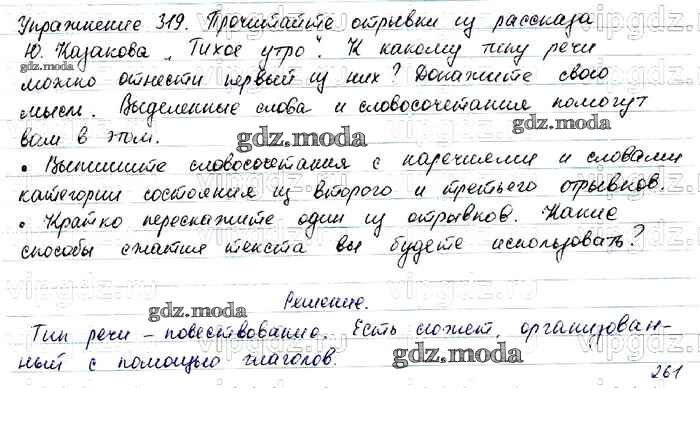 Упражнение 319. Прочитайте отрывки из рассказа
Ю. Казакова „Тихое утро". К какому типу речи
можно отнести первый из них? Докажите свою
мысль. Выделенные слова и словосочетания помогут
вам в этом.
• Выпишите словосочетания с наречиями и словами
категории состояния из второго и третьего отрывков.
• Кратко перескажите один из отрывков. Какие
способы сжатия текста вы будете использовать?
Решение.
Тип речи – повествование. Есть сюжет, организован-
ный с помощью глаголов.
261
gdz.moda
gdz.moda
gdz.moda
gdz.moda
gdz.moda
gdz.moda
vipgdz.ru
vipgdz.ru
vipgdz.ru
vipgdz.ru